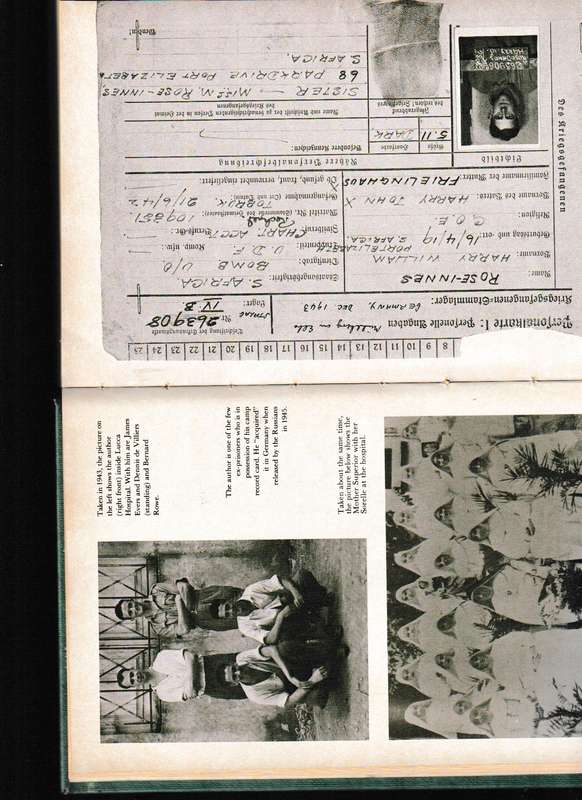 8 9 10 11 12 13 14 15 16 17 18 19 20 21 22 23 24 25
Personalkarte I: Personelle Angaben
Kriegsgefangenen-Stammlager:
GERMANY, DEC 1943
Beschriftung der Erkennungsmarke
Nr. 263908
Lager: IV B
Name: ROSE-INNES
Vorname: HARRY WILLIAM
Geburtstag und -ort: 16/4/19 PORT ELIZABETH S. AFRICA
Religion: C.O.E.
Vorname des Vaters: HARRY JOHN X
Familienname der Mutter: FRIELINGHAUS
Staatsangehörigkeit: S. AFRICA
Dienstgrad: BOMB U/O
Truppenteil: U.D.F. Komp. usw.:
Zivilberuf: CHART. ACCT Berufs-Gr.:
Matrikel Nr. (Stammrolle des Heimatstaates): 109351
Gefangennahme (Ort und Datum): TOBRUK 21/6/42
Ob gesund, krank, verwundet eingeliefert:
Des Kriegsgefangenen
Lichtbild
263908
Nähere Personalbeschreibung
Größe
Haarfarbe
Besondere Kennzeichen:
5.11
DARK
Fingerabdruck
Name und Anschrift der zu benachrichtigenden Person in der Heimat
des Kriegsgefangenen
SISTER – MISS. N. ROSE-INNES
68 PARKDRIVE PORT ELIZABETH
S. AFRICA.
Wenden!
Taken in 1943, the picture on
the left shows the author
(right front) inside Lucca
Hospital. With him are James
Evers and Dennis de Villiers
(standing) and Bernard
Rowe.
The author is one of the few
ex-prisoners who is in
possession of his camp
record card. He "acquired"
it in Germany when
released by the Russians
in 1945.
Taken about the same time,
the picture below shows the
Mother Superior with her
Sorelle at the hospital.